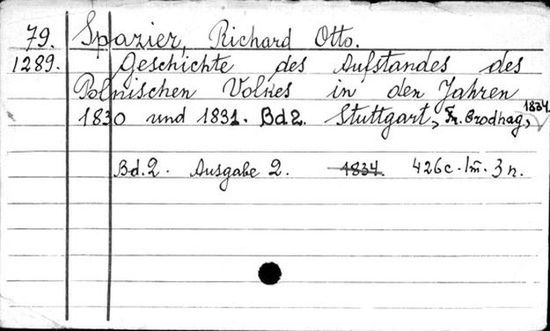 79. Spazier, Richard Otto.
1289. Geschichte des Aufstandes des
Polnischen Volkes in den Jahren
1830 und 1831. Bd.2. Stuttgart, Fr. Brodhag, 1834.
Bd.2. Ausgabe 2. 1834. 426c. 1m. 3n.